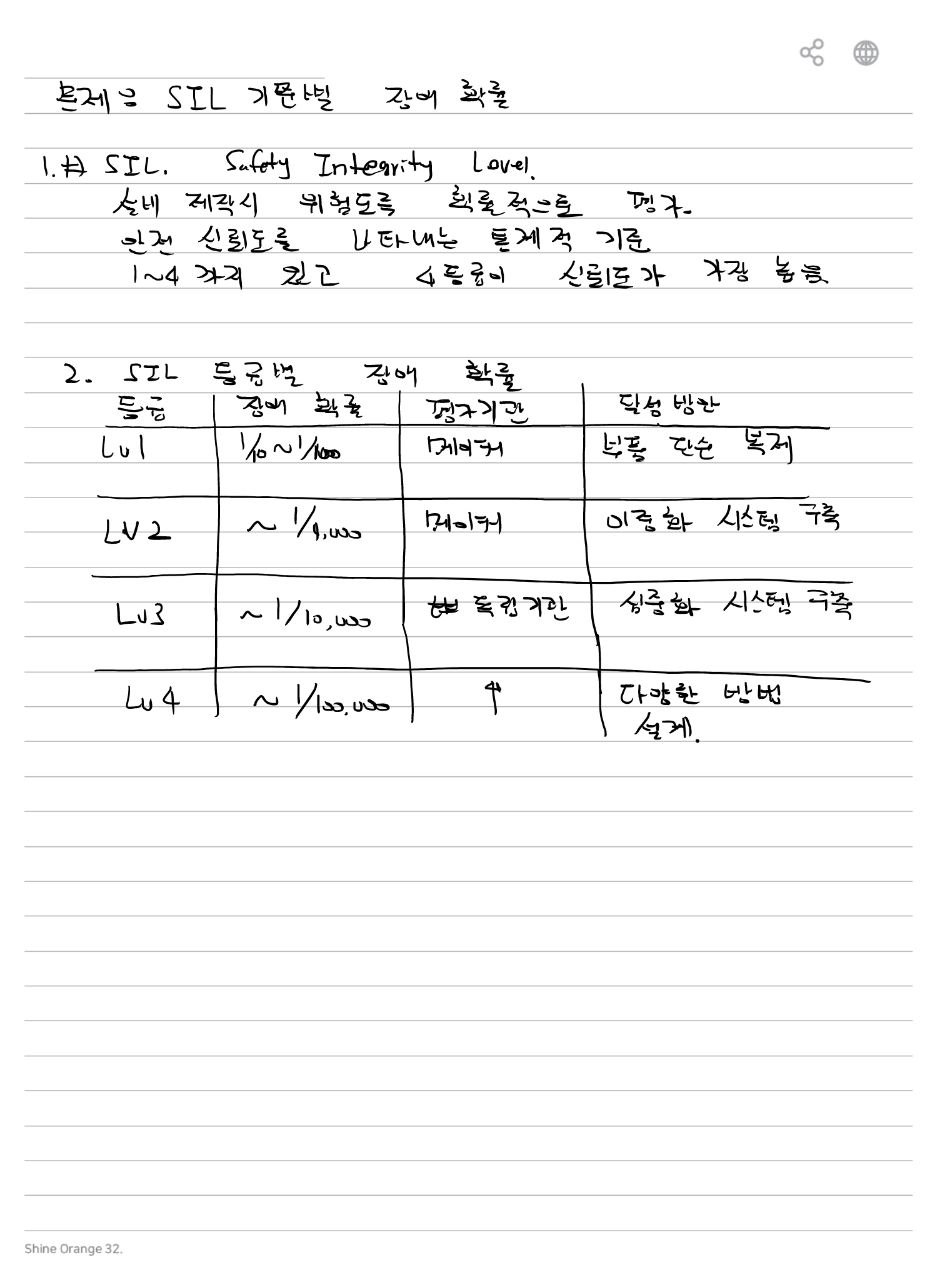 문제은 SIL 기준별 장애 확률
1. SIL. Safety Integrity Level.
설비 제작시 위험도를 확률적으로 평가.
안전 신뢰도를 나타내는 통계적 기준
1~4 까지 있고 4등급이 신뢰도가 가장 높음
2. SIL 등급별 장애 확률
등급 장애 확률 평가기관 달성 방안
Lv1 1/10 ~ 1/100 메이커 부품 단순 복제
LV2 ~ 1/1,000 메이커 이중화 시스템 구축
Lv3 ~ 1/10,000 독립기관 삼중화 시스템 구축
Lv4 ~ 1/100,000 ↑ 다양한 방법
설계.
Shine Orange 32.